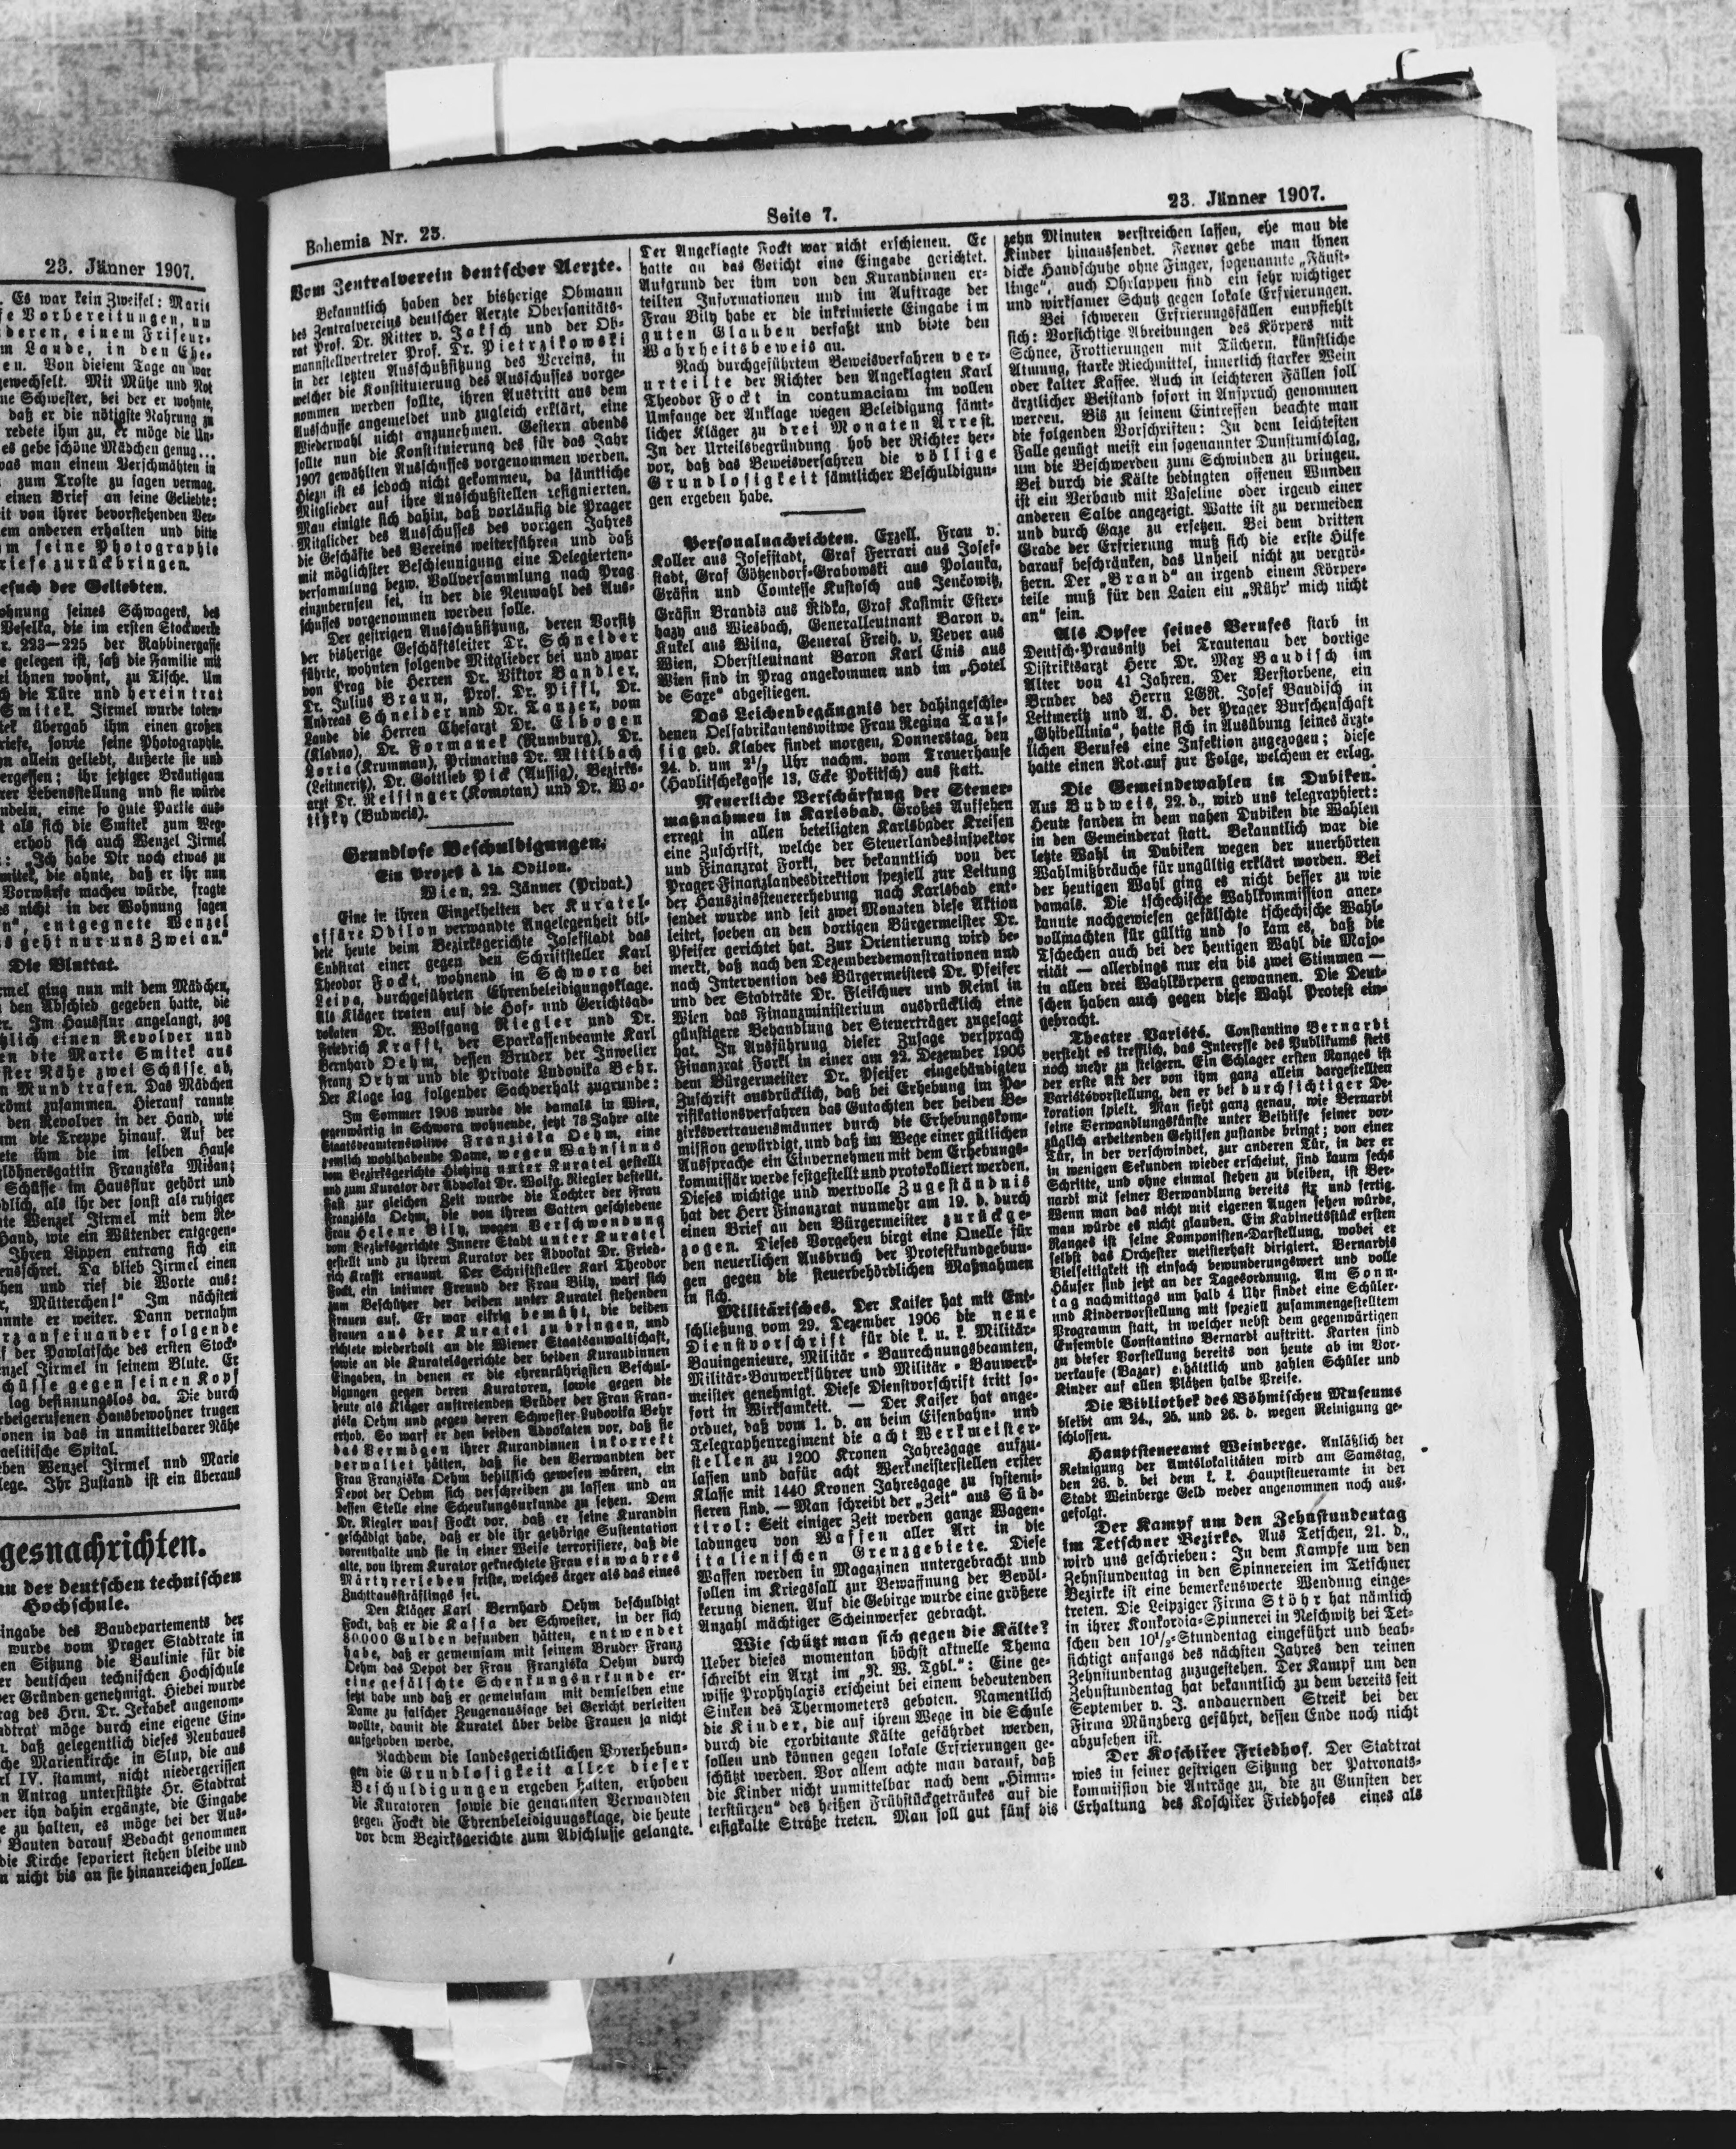 23. Jänner 1907.
Es war kein Zweifel: Marie
e Vorbereitungen, um
deren, einem Friseur-
m Lande, in den Ehe-
en. Von diesem Tage an war
gewechselt. Mit Mühe und Not
ne Schwester, bei der er wohnte,
daß er die nötigste Nahrung zu
redete ihm zu, er möge die Un-
es gebe schöne Mädchen genug...
was man einem Verschmähten in
zum Troste zu sagen vermag.
einen Brief an seine Geliebte:
it von ihrer bevorstehenden Ver-
em anderen erhalten und bitte
m seine Photographie
riefe zurückbringen.
esuch der Geliebten.
ohnung seines Schwagers, des
Veselka, die im ersten Stockwerke
r. 223—225 der Rabbinergasse
e gelegen ist, saß die Familie mit
ei ihnen wohnt, zu Tische. Um
ch die Türe und herein trat
Smitek. Jirmel wurde toten-
tek übergab ihm einen großen
riefe, sowie seine Photographie.
hn allein geliebt, äußerte sie und
ergessen; ihr jetziger Bräutigam
rer Lebensstellung und sie würde
ndeln, eine so gute Partie aus-
t als sich die Smitek zum Weg-
erhob sich auch Wenzel Jirmel
: „Ich habe Dir noch etwas zu
mitek, die ahnte, daß er ihr nun
Vorwürfe machen würde, fragte
es nicht in der Wohnung sagen
n“, entgegnete Wenzel
s geht nur uns Zwei an.“
Die Bluttat.
rmel ging nun mit dem Mädchen,
den Abschied gegeben hatte, die
er. Im Hausflur angelangt, zog
lich einen Revolver und
en die Marie Smitek aus
ster Nähe zwei Schüsse ab,
n Mund trafen. Das Mädchen
römt zusammen. Hierauf rannte
den Revolver in der Hand, wie
m die Treppe hinauf. Auf der
ete ihm die im selben Hause
löhnersgattin Franziska Misan;
Schüsse im Hausflur gehört und
dlich, als ihr der sonst als ruhiger
nte Wenzel Jirmel mit dem Re-
Hand, wie ein Wütender entgegen-
Ihren Lippen entrang sich ein
ensschrei. Da blieb Jirmel einen
hen und rief die Worte aus:
r, Mütterchen!“ Im nächsten
annte er weiter. Dann vernahm
rz aufeinander folgende
f der Pawlatsche des ersten Stock-
enzel Jirmel in seinem Blute. Er
chüsse gegen seinen Kopf
lag besinnungslos da. Die durch
rbeigerufenen Hausbewohner trugen
onen in das in unmittelbarer Nähe
aelitische Spital.
ben Wenzel Jirmel und Marie
lege. Ihr Zustand ist ein überaus
gesnachrichten.
au der deutschen technischen
Hochschule.
ingabe des Baudepartements der
wurde vom Prager Stadtrate in
en Sitzung die Baulinie für die
er deutschen technischen Hochschule
er Gründen genehmigt. Hiebei wurde
rag des Hrn. Dr. Jeřabek angenom-
adtrat möge durch eine eigene Ein-
n. daß gelegentlich dieses Neubaues
che Marienkirche in Slup, die aus
rl IV. stammt, nicht niedergerissen
n Antrag unterstützte Hr. Stadtrat
er ihn dahin ergänzte, die Eingabe
e zu halten, es möge bei der Aus-
Bauten darauf Bedacht genommen
die Kirche separiert stehen bleibe und
n nicht bis an sie hinanreichen sollen.
Bohemia Nr. 23.
Seite 7.
23. Jänner 1907.
Vom Zentralverein deutscher Aerzte.
Bekanntlich haben der bisherige Obmann
des Zentralvereins deutscher Aerzte Obersanitäts-
rat Prof. Dr. Ritter v. Jaksch und der Ob-
mannstellvertreter Prof. Dr. Pietrzikowski
in der letzten Ausschußsitzung des Vereins, in
welcher die Konstituierung des Ausschusses vorge-
nommen werden sollte, ihren Austritt aus dem
Ausschusse angemeldet und zugleich erklärt, eine
Wiederwahl nicht anzunehmen. Gestern abends
sollte nun die Konstituierung des für das Jahr
1907 gewählten Ausschusses vorgenommen werden.
Hiezu ist es jedoch nicht gekommen, da sämtliche
Mitglieder auf ihre Ausschußstellen resignierten.
Man einigte sich dahin, daß vorläufig die Prager
Mitglieder des Ausschusses des vorigen Jahres
die Geschäfte des Vereins weiterführen und daß
mit möglichster Beschleunigung eine Delegierten-
versammlung bezw. Vollversammlung nach Prag
einzuberufen sei, in der die Neuwahl des Aus-
schusses vorgenommen werden solle.
Der gestrigen Ausschußsitzung, deren Vorsitz
der bisherige Geschäftsleiter Dr. Schneider
führte, wohnten folgende Mitglieder bei und zwar
von Prag die Herren Dr. Viktor Bandler,
Dr. Julius Braun, Prof. Dr. Piffl, Dr.
Andreas Schneider und Dr. Tanzer, vom
Lande die Herren Chefarzt Dr. Elbogen
(Kladno), Dr. Formanek (Rumburg), Dr.
Loria (Krummau), Primarius Dr. Mittlbach
(Leitmeritz), Dr. Gottlieb Pick (Aussig), Bezirks-
arzt Dr. Reisinger (Komotau) und Dr. Wo-
titzky (Budweis).
Grundlose Beschuldigungen.
Ein Prozeß à la Odilon.
Wien, 22. Jänner (Privat.)
Eine in ihren Einzelheiten der Kuratel-
affäre Odilon verwandte Angelegenheit bil-
dete heute beim Bezirksgerichte Josefstadt das
Substrat einer gegen den Schriftsteller Karl
Theodor Fockt, wohnend in Schwora bei
Leipa, durchgeführten Ehrenbeleidigungsklage.
Als Kläger traten auf die Hof- und Gerichtsad-
vokaten Dr. Wolfgang Riegler und Dr.
Friedrich Krafft, der Sparkassenbeamte Karl
Bernhard Oehm, dessen Bruder der Juwelier
Franz Oehm und die Private Ludovika Behr.
Der Klage lag folgender Sachverhalt zugrunde:
Im Sommer 1903 wurde die damals in Wien,
gegenwärtig in Schwora wohnende, jetzt 78 Jahre alte
Staatsbeamtenswitwe Franziska Oehm, eine
ziemlich wohlhabende Dame, wegen Wahnsinns
vom Bezirksgerichte Hietzing unter Kuratel gestellt
und zum Kurator der Advokat Dr. Wolfg. Riegler bestellt.
Fast zur gleichen Zeit wurde die Tochter der Frau
Franziska Oehm, die von ihrem Gatten geschiedene
Frau Helene Bily, wegen Verschwendung
vom Bezirksgerichte Innere Stadt unter Kuratel
gestellt und zu ihrem Kurator der Advokat Dr. Fried-
rich Krafft ernannt. Der Schriftsteller Karl Theodor
Fockt, ein intimer Freund der Frau Bily, warf sich
zum Beschützer der beiden unter Kuratel stehenden
Frauen auf. Er war eifrig bemüht, die beiden
Frauen aus der Kuratel zu bringen, und
richtete wiederholt an die Wiener Staatsanwaltschaft,
sowie an die Kuratelsgerichte der beiden Kurandinnen
Eingaben, in denen er die ehrenrührigsten Beschul-
digungen gegen deren Kuratoren, sowie gegen die
heute als Kläger auftretenden Brüder der Frau Fran-
ziska Oehm und gegen deren Schwester Ludovika Behr
erhob. So warf er den beiden Advokaten vor, daß sie
das Vermögen ihrer Kurandinnen inkorrekt
verwaltet hätten, daß sie den Verwandten der
Frau Franziska Oehm behilflich gewesen wären, ein
Depot der Oehm sich verschreiben zu lassen und an
dessen Stelle eine Schenkungsurkunde zu setzen. Dem
Dr. Riegler warf Fockt vor, daß er seine Kurandin
geschädigt habe, daß er die ihr gehörige Sustentation
vorenthalte und sie in einer Weise terrorisiere, daß die
alte, von ihrem Kurator geknechtete Frau ein wahres
Märtyrerleben friste, welches ärger als das eines
Zuchthaussträflings sei.
Den Kläger Karl Bernhard Oehm beschuldigt
Fockt, daß er die Kassa der Schwester, in der sich
80.000 Gulden befunden hätten, entwendet
habe, daß er gemeinsam mit seinem Bruder Franz
Oehm das Depot der Frau Franziska Oehm durch
eine gefälschte Schenkungsurkunde er-
setzt habe und daß er gemeinsam mit demselben eine
Dame zu falscher Zeugenaussage bei Gericht verleiten
wollte, damit die Kuratel über beide Frauen ja nicht
aufgehoben werde.
Nachdem die landesgerichtlichen Vorerhebun-
gen die Grundlosigkeit aller dieser
Beschuldigungen ergeben hatten, erhoben
die Kuratoren sowie die genannten Verwandten
gegen Fockt die Ehrenbeleidigungsklage, die heute
vor dem Bezirksgerichte zum Abschlusse gelangte.
Der Angeklagte Fockt war nicht erschienen. Er
hatte an das Gericht eine Eingabe gerichtet.
Aufgrund der ihm von den Kurandinnen er-
teilten Informationen und im Auftrage der
Frau Bily habe er die inkrimierte Eingabe im
guten Glauben verfaßt und biete den
Wahrheitsbeweis an.
Nach durchgeführtem Beweisverfahren ver-
urteilte der Richter den Angeklagten Karl
Theodor Fockt in contumaciam im vollen
Umfange der Anklage wegen Beleidigung sämt-
licher Kläger zu drei Monaten Arrest.
In der Urteilsbegründung hob der Richter her-
vor, daß das Beweisverfahren die völlige
Grundlosigkeit sämtlicher Beschuldigun-
gen ergeben habe.
Personalnachrichten. Exzell. Frau v.
Koller aus Josefstadt, Graf Ferrari aus Josef-
stadt, Graf Götzendorf-Grabowski aus Polanka,
Gräfin und Comtesse Kustosch aus Jenkowitz,
Gräfin Brandis aus Ridka, Graf Kasimir Ester-
hazy aus Wiesbach, Generalleutnant Baron v.
Kukel aus Wilna, General Freih. v. Bever aus
Wien, Oberstleutnant Baron Karl Enis aus
Wien sind in Prag angekommen und im „Hotel
de Saxe“ abgestiegen.
Das Leichenbegängnis der dahingeschie-
denen Oelfabrikantenswitwe Frau Regina Taus-
sig geb. Klaber findet morgen, Donnerstag, den
24. d. um 2½ Uhr nachm. vom Trauerhause
(Havlitschekgasse 13, Ecke Pořitsch) aus statt.
Neuerliche Verschärfung der Steuer-
maßnahmen in Karlsbad. Großes Aufsehen
erregt in allen beteiligten Karlsbader Kreisen
eine Zuschrift, welche der Steuerlandesinspektor
und Finanzrat Forkl, der bekanntlich von der
Prager Finanzlandesdirektion speziell zur Leitung
der Hauszinssteuererhebung nach Karlsbad ent-
sendet wurde und seit zwei Monaten diese Aktion
leitet, soeben an den dortigen Bürgermeister Dr.
Pfeifer gerichtet hat. Zur Orientierung wird be-
merkt, daß nach den Dezemberdemonstrationen und
nach Intervention des Bürgermeisters Dr. Pfeifer
und der Stadträte Dr. Fleischner und Reinl in
Wien das Finanzministerium ausdrücklich eine
günstigere Behandlung der Steuerträger zugesagt
hat. In Ausführung dieser Zusage versprach
Finanzrat Forkl in einer am 22. Dezember 1906
dem Bürgermeister Dr. Pfeifer eingehändigten
Zuschrift ausdrücklich, daß bei Erhebung im Pa-
rifikationsverfahren das Gutachten der beiden Be-
zirksvertrauensmänner durch die Erhebungskom-
mission gewürdigt, und daß im Wege einer gütlichen
Aussprache ein Einvernehmen mit dem Erhebungs-
kommissär werde festgestellt und protokolliert werden.
Dieses wichtige und wertvolle Zugeständnis
hat der Herr Finanzrat nunmehr am 19. d. durch
einen Brief an den Bürgermeister zurückge-
zogen. Dieses Vorgehen birgt eine Quelle für
den neuerlichen Ausbruch der Protestkundgebun-
gen gegen die steuerbehördlichen Maßnahmen
in sich.
Militärisches. Der Kaiser hat mit Ent-
schließung vom 29. Dezember 1906 die neue
Dienstvorschrift für die k. u. k. Militär-
Bauingenieure, Militär-Baurechnungsbeamten,
Militär-Bauwerkführer und Militär-Bauwerk-
meister genehmigt. Diese Dienstvorschrift tritt so-
fort in Wirksamkeit. — Der Kaiser hat ange-
ordnet, daß vom 1. d. an beim Eisenbahn- und
Telegraphenregiment die acht Werkmeister-
stellen zu 1200 Kronen Jahresgage aufzu-
lassen und dafür acht Werkmeisterstellen erster
Klasse mit 1440 Kronen Jahresgage zu systemi-
sieren sind. — Man schreibt der „Zeit“ aus Süd-
tirol: Seit einiger Zeit werden ganze Wagen-
ladungen von Waffen aller Art in die
italienischen Grenzgebiete. Diese
Waffen werden in Magazinen untergebracht und
sollen im Kriegsfall zur Bewaffnung der Bevöl-
kerung dienen. Auf die Gebirge wurde eine größere
Anzahl mächtiger Scheinwerfer gebracht.
Wie schützt man sich gegen die Kälte?
Ueber dieses momentan höchst aktuelle Thema
schreibt ein Arzt im „N. W. Tgbl.“: Eine ge-
wisse Prophylaxis erscheint bei einem bedeutenden
Sinken des Thermometers geboten. Namentlich
die Kinder, die auf ihrem Wege in die Schule
durch die exorbitante Kälte gefährdet werden,
sollen und können gegen lokale Erfrierungen ge-
schützt werden. Vor allem achte man darauf, daß
die Kinder nicht unmittelbar nach dem „Hinun-
terstürzen“ des heißen Frühstückgetränkes auf die
eisigkalte Straße treten. Man soll gut fünf bis
zehn Minuten verstreichen lassen, ehe man die
Kinder hinaussendet. Ferner gebe man ihnen
dicke Handschuhe ohne Finger, sogenannte „Fäust-
linge“, auch Ohrlappen sind ein sehr wichtiger
und wirksamer Schutz gegen lokale Erfrierungen.
Bei schweren Erfrierungsfällen empfiehlt
sich: Vorsichtige Abreibungen des Körpers mit
Schnee, Frottierungen mit Tüchern, künstliche
Atmung, starke Riechmittel, innerlich starker Wein
oder kalter Kaffee. Auch in leichteren Fällen soll
ärztlicher Beistand sofort in Anspruch genommen
werden. Bis zu seinem Eintreffen beachte man
die folgenden Vorschriften: In dem leichtesten
Falle genügt meist ein sogenannter Dunstumschlag,
um die Beschwerden zum Schwinden zu bringen.
Bei durch die Kälte bedingten offenen Wunden
ist ein Verband mit Vaseline oder irgend einer
anderen Salbe angezeigt. Watte ist zu vermeiden
und durch Gaze zu ersetzen. Bei dem dritten
Grade der Erfrierung muß sich die erste Hilfe
darauf beschränken, das Unheil nicht zu vergrö-
ßern. Der „Brand“ an irgend einem Körper-
teile muß für den Laien ein „Rühr’ mich nicht
an“ sein.
Als Opfer seines Berufes starb in
Deutsch-Prausnitz bei Trautenau der dortige
Distriktsarzt Herr Dr. Max Baudisch im
Alter von 41 Jahren. Der Verstorbene, ein
Bruder des Herrn LGR. Josef Baudisch in
Leitmeritz und A. H. der Prager Burschenschaft
„Ghibellinia“, hatte sich in Ausübung seines ärzt-
lichen Berufes eine Infektion zugezogen; diese
hatte einen Rotlauf zur Folge, welchem er erlag.
Die Gemeindewahlen in Dubiken.
Aus Budweis, 22. d., wird uns telegraphiert:
Heute fanden in dem nahen Dubiken die Wahlen
in den Gemeinderat statt. Bekanntlich war die
letzte Wahl in Dubiken wegen der unerhörten
Wahlmißbräuche für ungültig erklärt worden. Bei
der heutigen Wahl ging es nicht besser zu wie
damals. Die tschechische Wahlkommission aner-
kannte nachgewiesen gefälschte tschechische Wahl-
vollmachten für gültig und so kam es, daß die
Tschechen auch bei der heutigen Wahl die Majo-
rität — allerdings nur ein bis zwei Stimmen —
in allen drei Wahlkörpern gewannen. Die Deut-
schen haben auch gegen diese Wahl Protest ein-
gebracht.
Theater Varieté. Constantino Bernardi
versteht es trefflich, das Interesse des Publikums stets
noch mehr zu steigern. Ein Schlager ersten Ranges ist
der erste Akt der von ihm ganz allein dargestellten
Varietévorstellung, den er bei durchsichtiger De-
koration spielt. Man sieht ganz genau, wie Bernardi
seine Verwandlungskünste unter Beihilfe seiner vor-
züglich arbeitenden Gehilfen zustande bringt; von einer
Tür, in der verschwindet, zur anderen Tür, in der er
in wenigen Sekunden wieder erscheint, sind kaum sechs
Schritte, und ohne einmal stehen zu bleiben, ist Ber-
nardi mit seiner Verwandlung bereits fix und fertig.
Wenn man das nicht mit eigenen Augen sehen würde,
man würde es nicht glauben. Ein Kabinettsstück ersten
Ranges ist seine Komponisten-Darstellung, wobei er
selbst das Orchester meisterhaft dirigiert. Bernardis
Vielseitigkeit ist einfach bewunderungswert und volle
Häuser sind jetzt an der Tagesordnung. Am Sonn-
tag nachmittags um halb 4 Uhr findet eine Schüler-
und Kindervorstellung mit speziell zusammengestelltem
Programm statt, in welcher nebst dem gegenwärtigen
Ensemble Constantino Bernardi auftritt. Karten sind
zu dieser Vorstellung bereits von heute ab im Vor-
verkaufe (Bazar) erhältlich und zahlen Schüler und
Kinder auf allen Plätzen halbe Preise.
Die Bibliothek des Böhmischen Museums
bleibt am 24., 25. und 26. d. wegen Reinigung ge-
schlossen.
Hauptsteueramt Weinberge. Anläßlich der
Reinigung der Amtslokalitäten wird am Samstag,
den 26. d. bei dem k. k. Hauptsteueramte in der
Stadt Weinberge Geld weder angenommen noch aus-
gefolgt.
Der Kampf um den Zehnstundentag
im Tetschner Bezirke. Aus Tetschen, 21. d.,
wird uns geschrieben: In dem Kampfe um den
Zehnstundentag in den Spinnereien im Tetschner
Bezirke ist eine bemerkenswerte Wendung einge-
treten. Die Leipziger Firma Stöhr hat nämlich
in ihrer Konkordia-Spinnerei in Neschwitz bei Tet-
schen den 10½-Stundentag eingeführt und beab-
sichtigt anfangs des nächsten Jahres den reinen
Zehnstundentag zuzugestehen. Der Kampf um den
Zehnstundentag hat bekanntlich zu dem bereits seit
September v. J. andauernden Streik bei der
Firma Münzberg geführt, dessen Ende noch nicht
abzusehen ist.
Der Koschiřer Friedhof. Der Stadtrat
wies in seiner gestrigen Sitzung der Patronats-
kommission die Anträge zu, die zu Gunsten der
Erhaltung des Koschiřer Friedhofes eines als